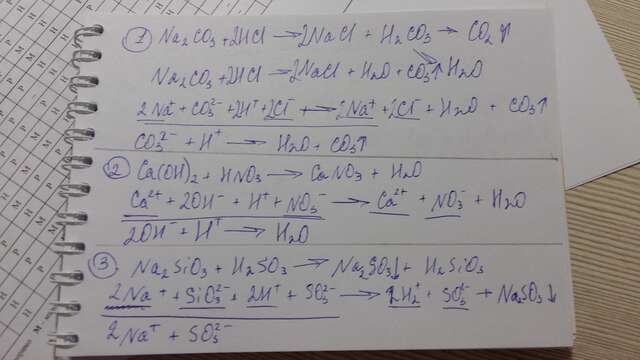 ① Na₂CO₃ + 2HCl → 2NaCl + H₂CO₃ → CO₂↑
↘ H₂O
Na₂CO₃ + 2HCl → 2NaCl + H₂O + CO₃↑
2Na⁺ + CO₃²⁻ + 2H⁺ + 2Cl⁻ → 2Na⁺ + 2Cl⁻ + H₂O + CO₃↑
CO₃²⁻ + H⁺ → H₂O + CO₃↑
② Ca(OH)₂ + HNO₃ → CaNO₃ + H₂O
Ca²⁺ + 2OH⁻ + H⁺ + NO₃⁻ → Ca²⁺ + NO₃⁻ + H₂O
2OH⁻ + H⁺ → H₂O
③ Na₂SiO₃ + H₂SO₃ → Na₂SO₃↓ + H₂SiO₃
2Na⁺ + SiO₃²⁻ + 2H⁺ + SO₃²⁻ → 2H₂⁺ + SO₃²⁻ + Na₂SO₃↓
2Na⁺ + SO₃²⁻